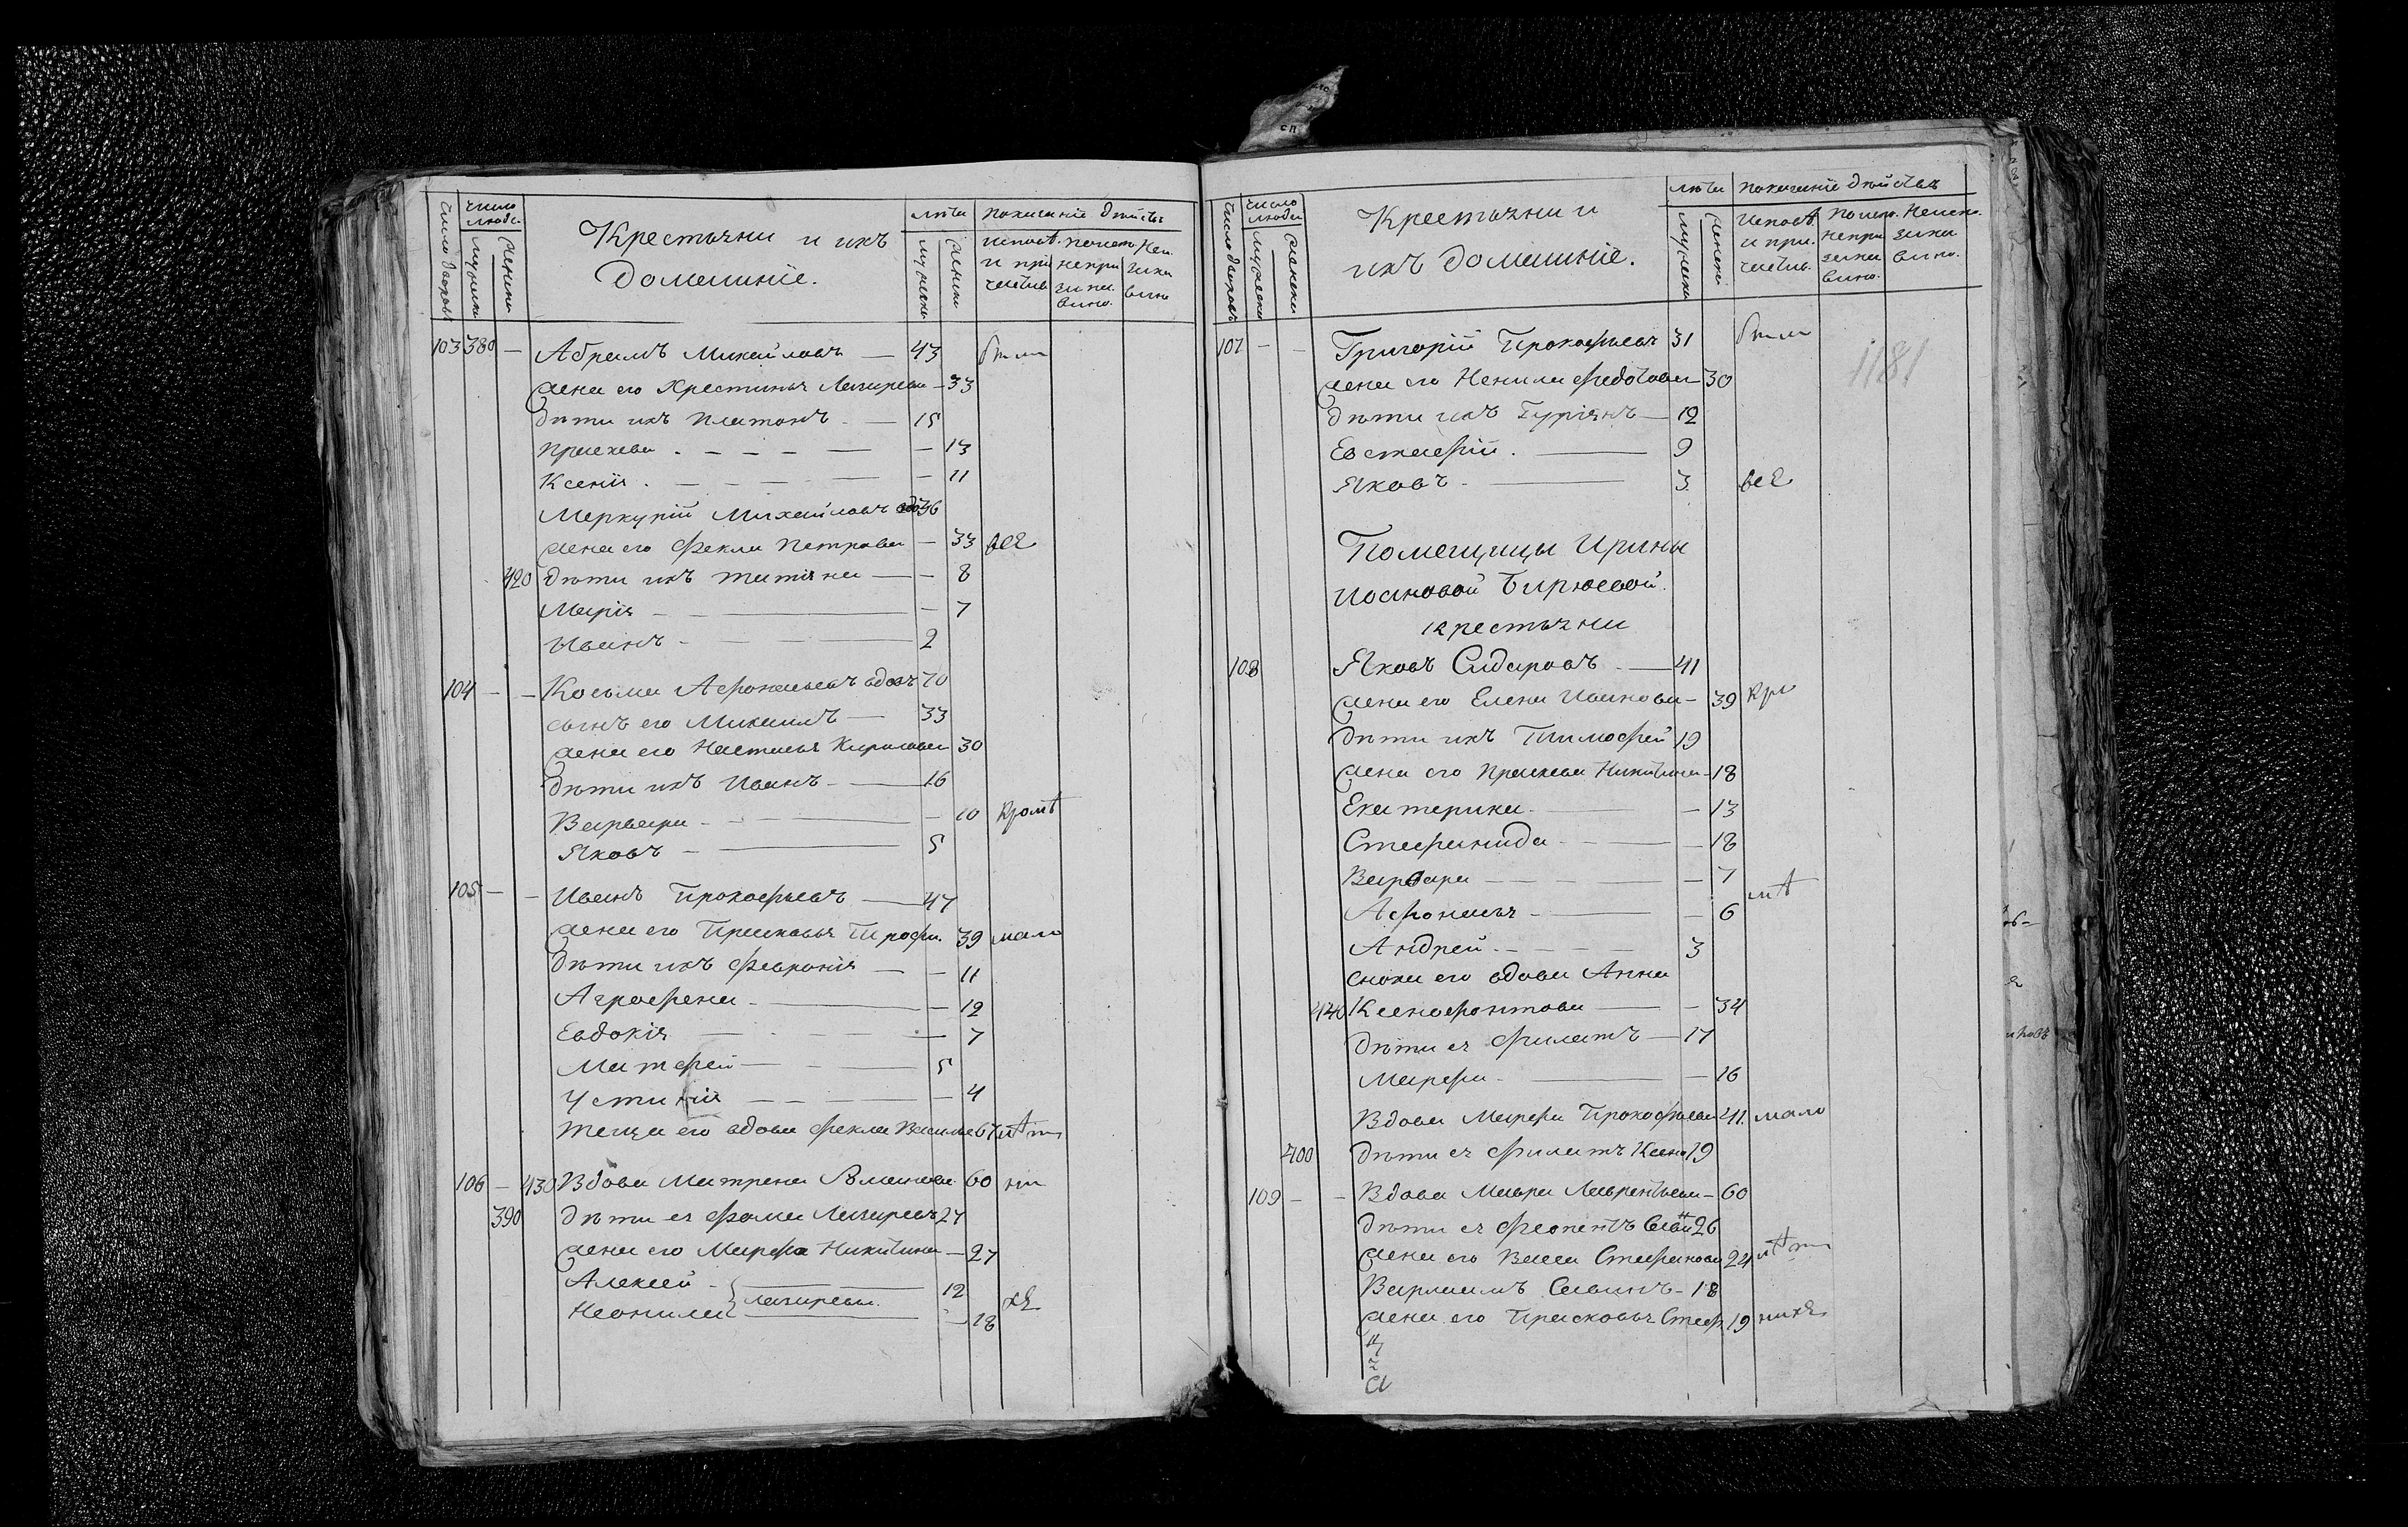 число дворовъ
число людей
мужеска
женска
Крестьяни и ихъ
домашніе.
лѣта
мужеска
женска
показаніе дѣйства
испов. и при частив.
испов. непри
103 380 — Абрамъ Михайловъ — 43 были
жена его Хрестинья Лазарева — 33
дѣти ихъ Платонъ — 15
Праскева — 13
Ксенія — 11
Меркурій Михайловъ 36
жена его Фекла Петрова — 33 все
420 дѣти ихъ Татіяна — 8
Марія — 7
Иванъ — 2
104 — — Косьма Афонасьевъ вдовъ 70
сынъ его Михаилъ — 33
жена его Настасья Кирилова 30
дѣти ихъ Иванъ — 16
Варвара — 10 кромѣ
Яковъ — 5
105 — — Иванъ Прокофьевъ — 47
жена его Прасковья Трофи. 39 мало
дѣти ихъ Февронія — 11
Аграфена — 12
Евдокія — 7
Матфей — 5
Устинія — 4
теща его вдова Фекла Василье 67 лѣт
106 — 430 Вдова Матрена Романова 60 ни
390 дѣти ея Фома Лазаревъ 27
жена его Марфа Никитина — 27
Алексей — 12
Неонила 18
Лазаревы хъ
число дворовъ
число людей
мужеска
женска
Крестьяни и
ихъ домашніе.
лѣта
мужеска
женска
показаніе дѣйства
1181
107 — — Григорій Прокофьевъ 31 были
жена его Ненила Федотова — 30
дѣти ихъ Гуріянъ — 12
Евстафій — 9
Яковъ — 3 все
Помещицы Ирины
Иоановой Бирюевой
крестьяни
108 Яковъ Сидаровъ — 41
жена его Елена Иванова — 39 кро
дѣти ихъ Тимофей 19
жена его Праскева Никитина — 18
Екатерина — 13
Стефанида — 18
Варвара — 7
мѣ
Афонасья — 6
Андрей — 3
сноха его вдова Анна
440 Ксенофонтова — 34
дѣти ея Филатъ — 17
Марфа — 16
Вдова Марфа Прокофьева 41 мало
400 дѣти ея Филатъ Ксено 19
109 — — Вдова Мавра Лаврентьева — 60
дѣти ея Феопентъ 26
жена его Васса Стефанова 24 лѣт
Варлаамъ Савинъ — 18
жена его Прасковья Стеф 19 нихъ